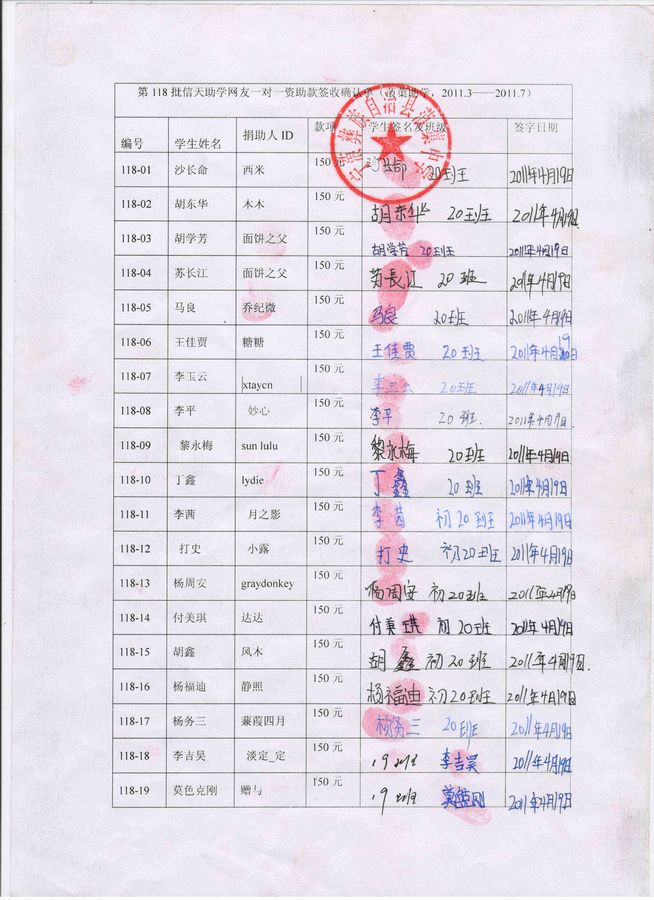 第 118 批信天助学网友一对一资助款签收确认单（菠菜助学，2011.3——2011.7）
编号 学生姓名 捐助人 ID 款项 学生签名及班级 签字日期
118-01 沙长命 西米 150 元 20班 2011年4月19日
118-02 胡东华 木木 150 元 胡东华 20班 2011年4月19日
118-03 胡学芳 面饼之父 150 元 胡学芳 20班 2011年4月19日
118-04 苏长江 面饼之父 150 元 苏長江 20班 2011年4月19日
118-05 马良 乔纪微 150 元 马良 20班 2011年4月19日
118-06 王佳贾 糖糖 150 元 王佳贾 20班 2011年4月19日
118-07 李玉云 xtaycn 150 元 李玉云 20班 2011年4月19日
118-08 李平 妙心 150 元 李平 20班. 2011年4月19日.
118-09 黎永梅 sun lulu 150 元 黎永梅 20班 2011年4月19日
118-10 丁鑫 lydie 150 元 丁鑫 20班 2011年4月19日
118-11 李茜 月之影 150 元 李茜 初20班 2011年4月19日
118-12 打史 小露 150 元 打史 初20班 2011年4月19日
118-13 杨周安 graydonkey 150 元 杨周安 初20班 2011年4月19日
118-14 付美琪 达达 150 元 付美琪 初20班 2011年4月19日
118-15 胡鑫 风木 150 元 胡鑫 初20班 2011年4月19日.
118-16 杨福迪 静照 150 元 杨福迪 初20班 2011年4月19日
118-17 杨务三 蒹葭四月 150 元 杨务三 20班 2011年4月19日
118-18 李吉昊 淡定_定 150 元 19班 李吉昊 2011年4月19日
118-19 莫色克刚 赠与 150 元 19班 2011年4月19日